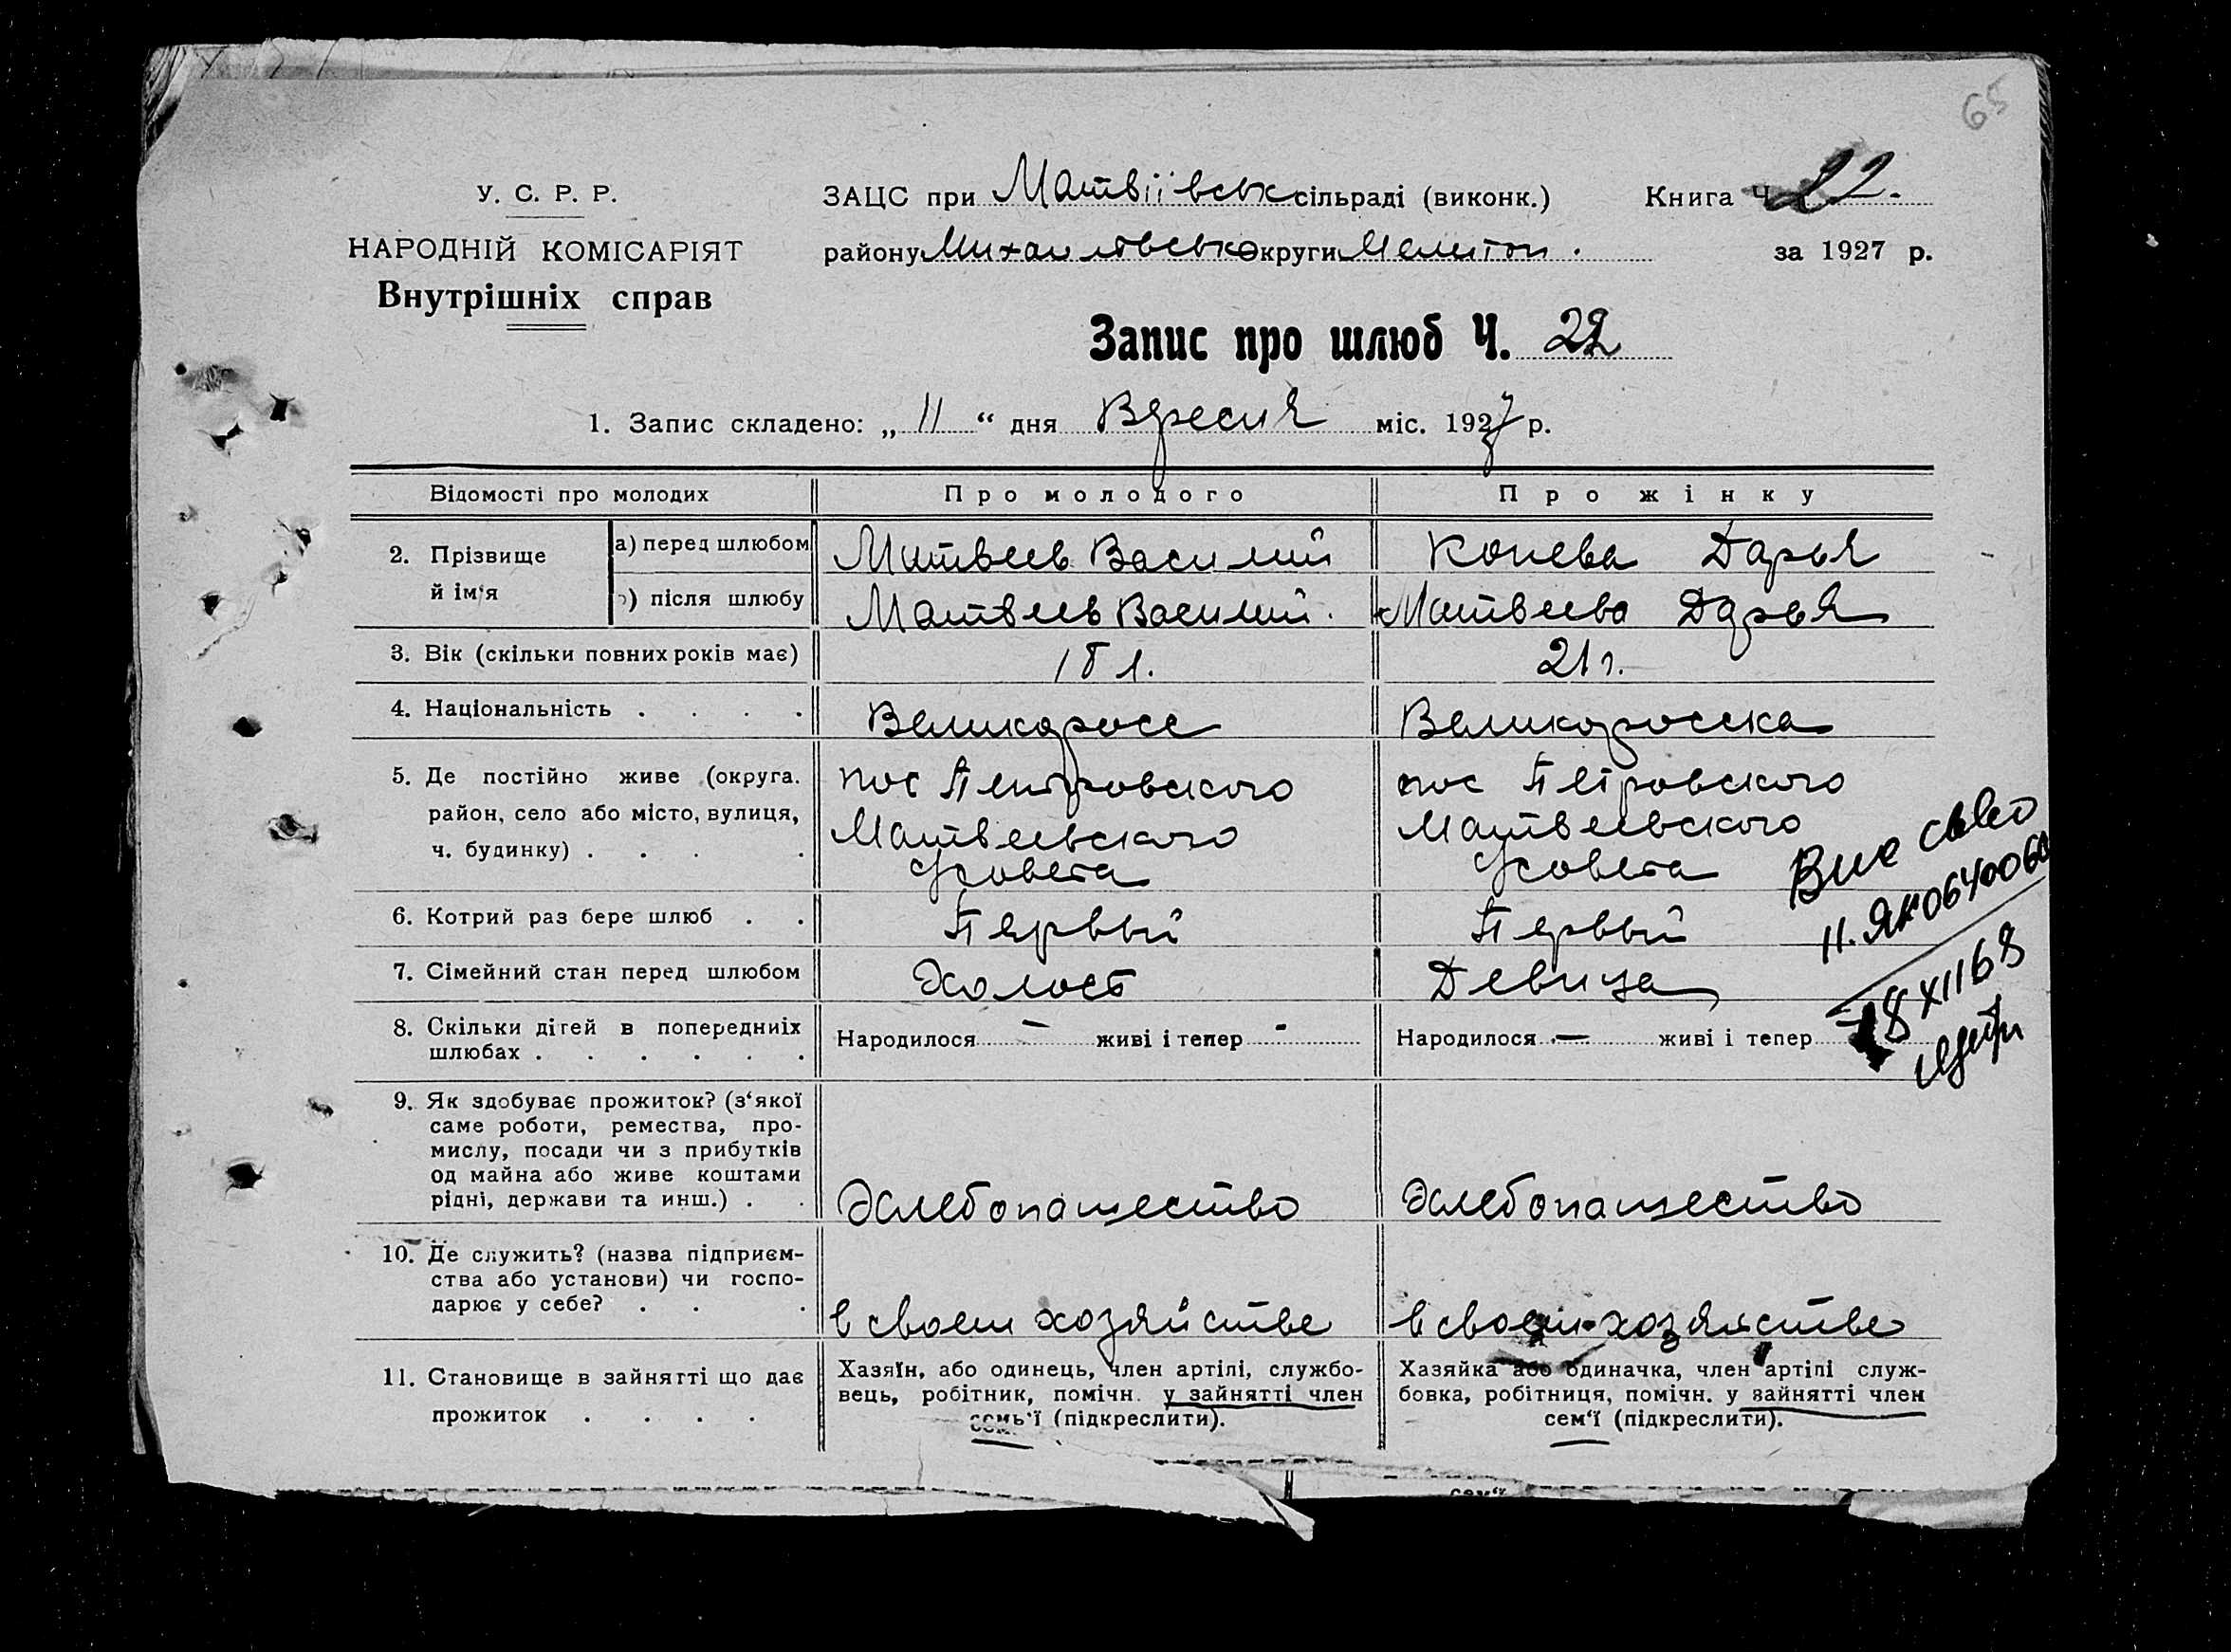 65
У. С. Р. Р.
НАРОДНІЙ КОМІСАРІЯТ
Внутрішніх справ
ЗАЦС при Матвіївськ сільраді (виконк.)
Книга Ч 22.
району Михайлівськ округи Мелитоп.
за 1927 р.
Запис про шлюб Ч. 22
1. Запис складено: „ 11 “ дня Вересня міс. 1927 р.
Відомості про молодих
Про молодого
Про жінку
2. Прізвище й ім‘я
а) перед шлюбом
Матвеев Василий
Конева Дарья
) після шлюбу
Матвеев Василий.
Матвеева Дарья
3. Вік (скільки повних років має)
18 л.
21 г.
4. Національність . . . .
Великоросс
Великоросска
5. Де постійно живе (округа.
район, село або місто, вулиця,
ч. будинку) . . . .
пос Петровского
Матвеевского
с/совета
пос Петровского
Матвеевского
с/совета
6. Котрий раз бере шлюб . .
Первый
Первый
7. Сімейний стан перед шлюбом
Холост
Девица
8. Скільки дітей в попередниіх
шлюбах . . . . . .
Народилося — живі і тепер -
Народилося — живі і тепер
9. Як здобуває прожиток? (з‘якої
саме роботи, ремества, про-
мислу, посади чи з прибутків
од майна або живе коштами
рідні, держави та инш.) . .
Хлебопашество
Хлебопашество
10. Де служить? (назва підприєм-
ства або установи) чи госпо-
дарює у себе? . . .
в своем хозяйстве
в своем хозяйстве
11. Становище в зайнятті що дає
прожиток . . . .
Хазяїн, або одинець, член артілі, службо-
вець, робітник, помічн. у зайнятті член
семь‘ї (підкреслити).
Хазяйка або одиначка, член артілі служ-
бовка, робітниця, помічн. у зайнятті член
сем‘ї (підкреслити).
18 XII 68